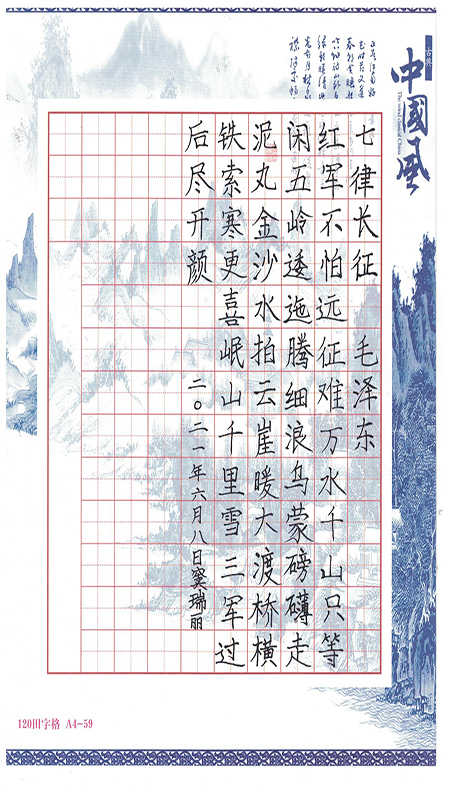 古典
中國风
七律长征 毛泽东
红军不怕远征难万水千山只等
闲五岭逶迤腾细浪乌蒙磅礴走
泥丸金沙水拍云崖暖大渡桥横
铁索寒更喜岷山千里雪三军过
后尽开颜 二〇二一年六月八日窦瑞丽
120田字格 A4-59